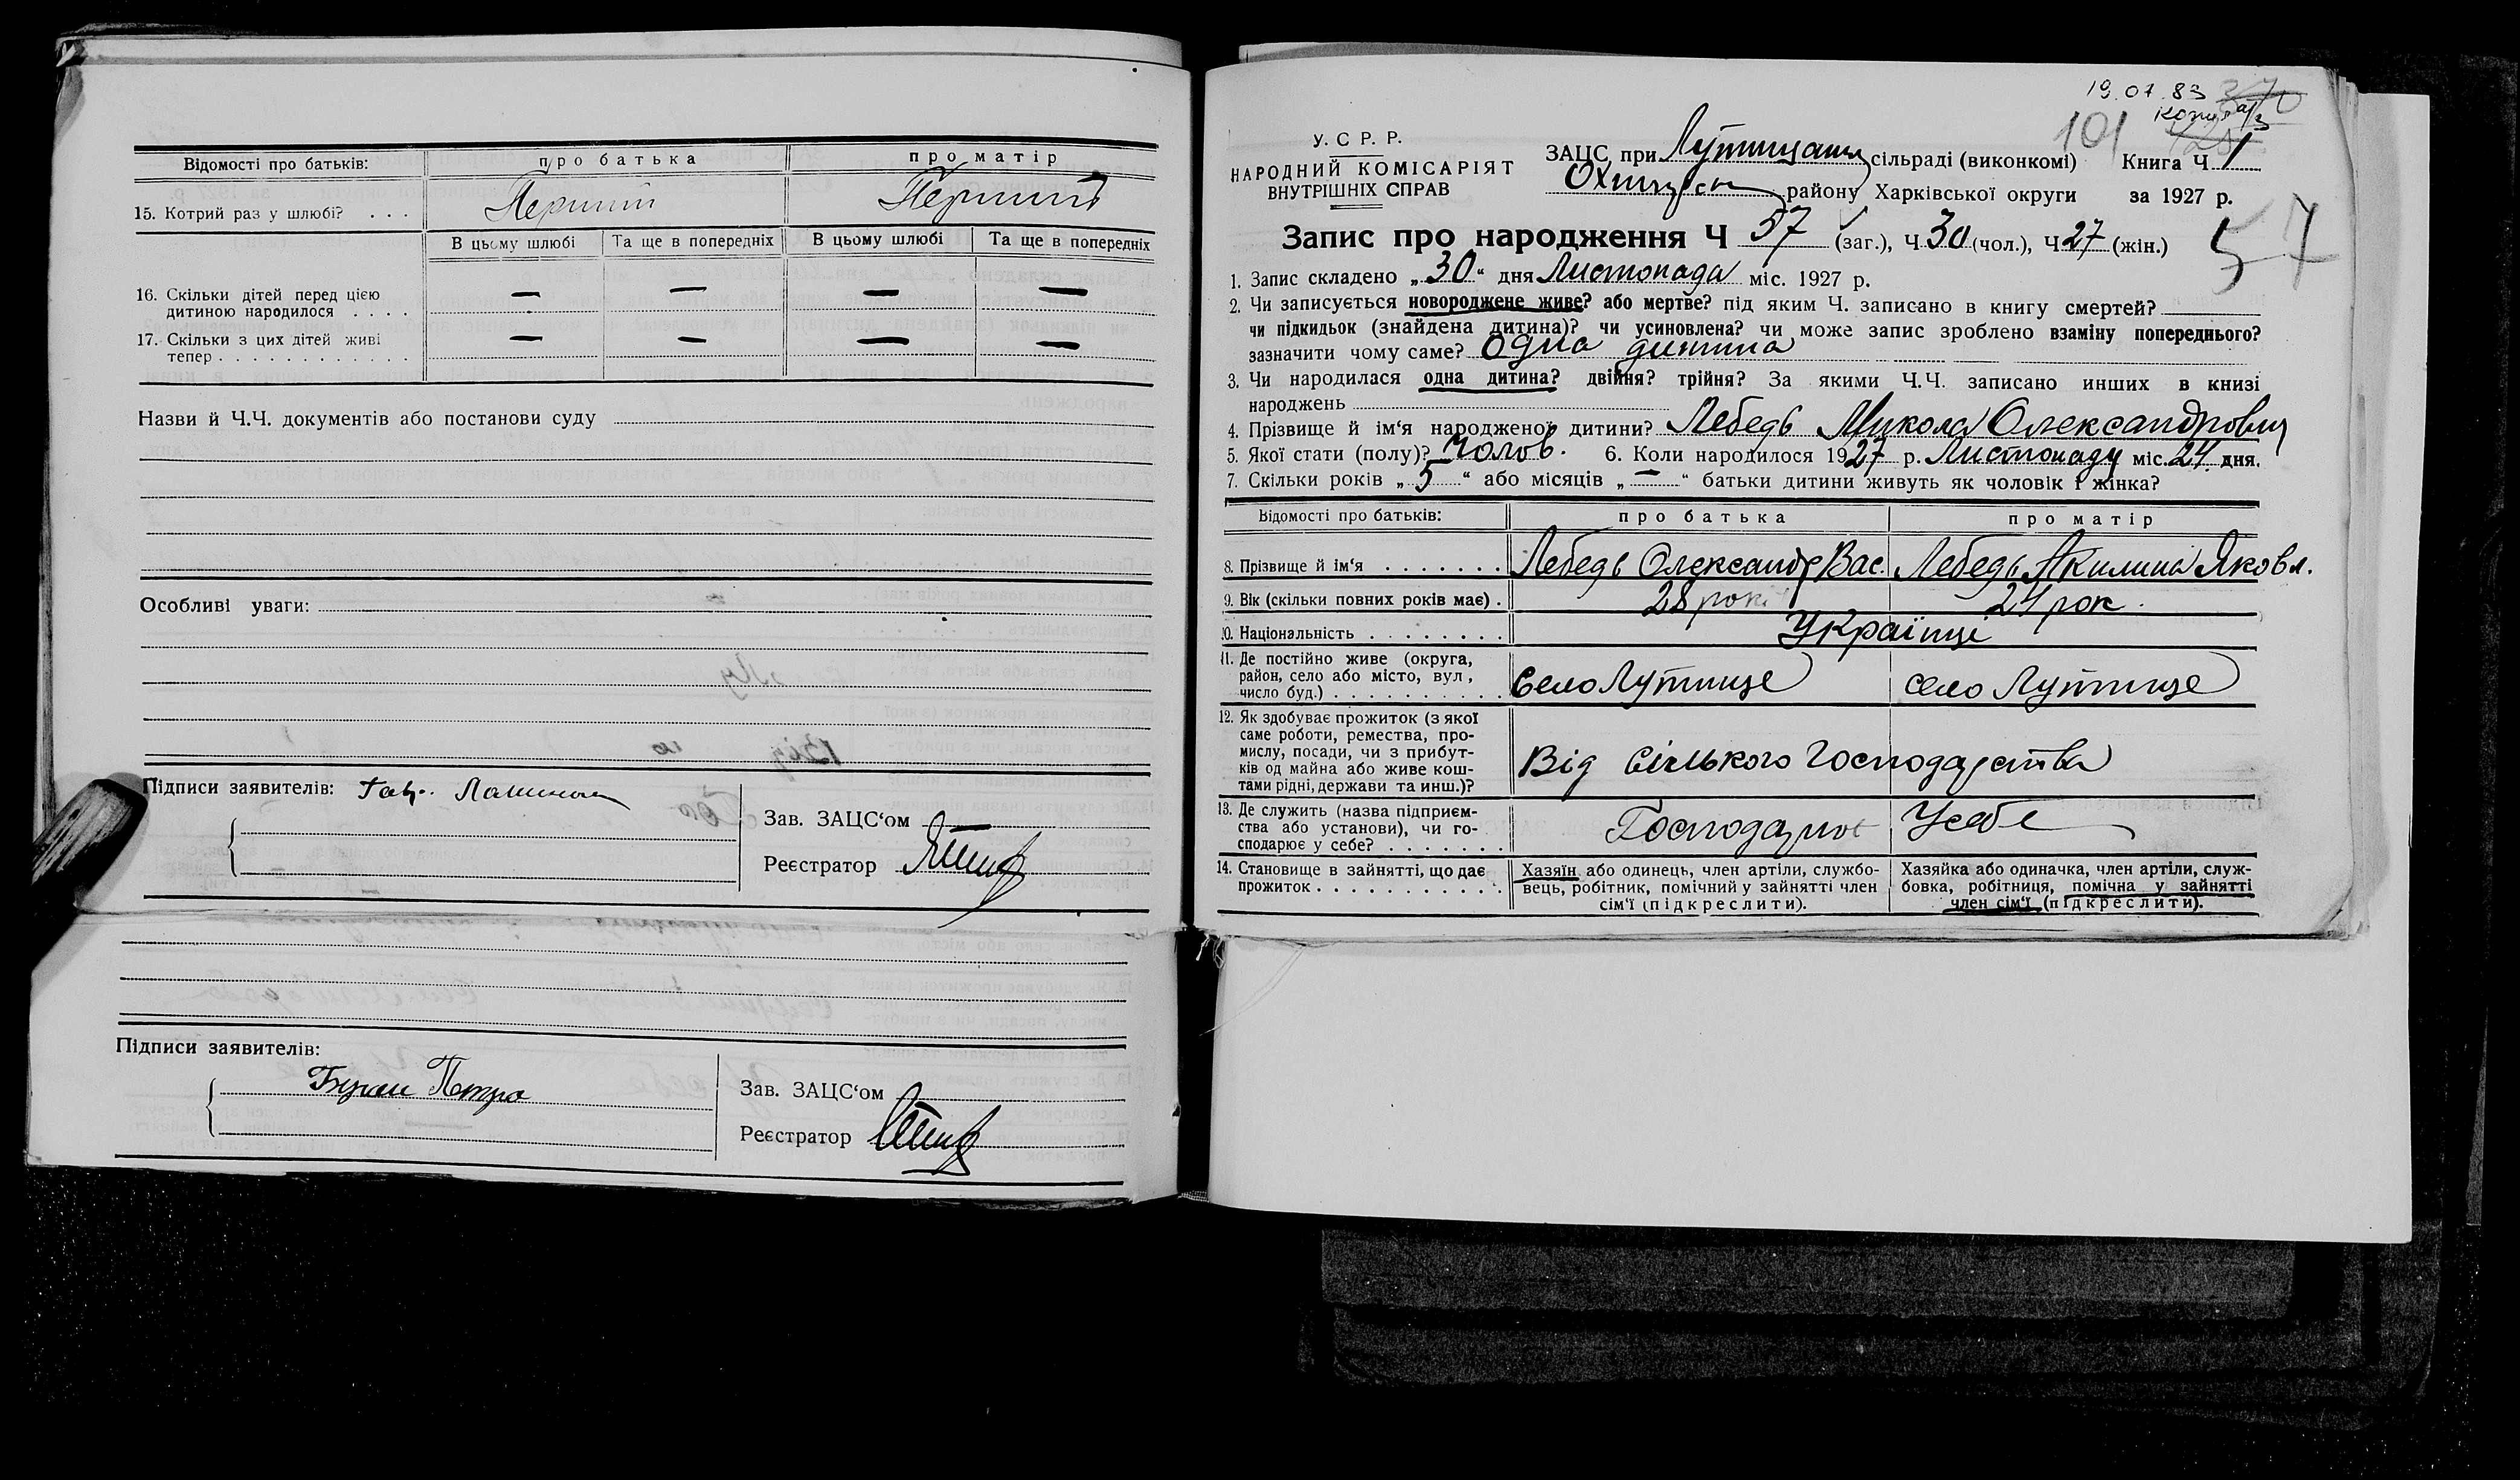 Відомості про батьків: про батька про матір
15. Котрий раз у шлюбі? . . . Перший Перший
В цьому шлюбі Та ще в попередніх В цьому шлюбі Та ще в попередніх
16. Скільки дітей перед цією
дитиною народилося . . . . — — — —
17. Скільки з цих дітей живі
тепер . . . . . . . . . . . . — — — —
Назви й Ч.Ч. документів або постанови суду
Особливі уваги:
Підписи заявителів:
Зав. ЗАЦС‘ом
Реєстратор
Підписи заявителів:
Петро
Зав. ЗАЦС‘ом
Реєстратор
19.07.83
101
У.С.Р.Р.
НАРОДНИЙ КОМІСАРІЯТ
ВНУТРІШНІХ СПРАВ
ЗАЦС при сільраді (виконкомі) Книга Ч. 1
району Харківської округи за 1927 р.
Запис про народження Ч 57 (заг.), Ч 30 (чол.), Ч 27 (жін.) 57
1. Запис складено „30“ дня Листопада міс. 1927 р.
2. Чи записується новороджене живе? або мертве? під яким Ч. записано в книгу смертей?
чи підкидьок (знайдена дитина)? чи усиновлена? чи може запис зроблено взаміну попереднього?
зазначити чому саме? Одна дитина
3. Чи народилася одна дитина? двійня? трійня? За якими Ч.Ч. записано инших в книзі
народжень
4. Прізвище й ім‘я народженої дитини? Лебедь Микола Олександрович
5. Якої стати (полу)? Чолов. 6. Коли народилося 1927 р. Листопаду міс. 24 дня.
7. Скільки років „5“ або місяців „—“ батьки дитини живуть як чоловік і жінка?
Відомості про батьків: про батька про матір
8. Прізвище й ім‘я . . . . . . . Лебедь Олександр Вас. Лебедь Акилина Яковл.
9. Вік (скільки повних років має) . 28 рокі 24 рок.
10. Національність . . . . . . . . Українці
11. Де постійно живе (округа,
район, село або місто, вул,
число буд.) . . . . . . . . . . Село Лутище село Лутище
12. Як здобуває прожиток (з якої
саме роботи, ремества, про-
мислу, посади, чи з прибут-
ків од майна або живе кош-
тами рідні, держави та инш.)? Від Сілького Господарства
13. Де служить (назва підприєм-
ства або установи), чи го-
сподарює у себе? . . . . . . . Господарює Усебе
14. Становище в зайнятті, що дає
прожиток . . . . . . . . . . . .
Хазяїн або одинець, член артіли, службо-
вець, робітник, помічний у зайнятті член
сім‘ї (підкреслити).
Хазяйка або одиначка, член артіли, служ-
бовка, робітниця, помічна у зайнятті
член сім‘ї (підкреслити).